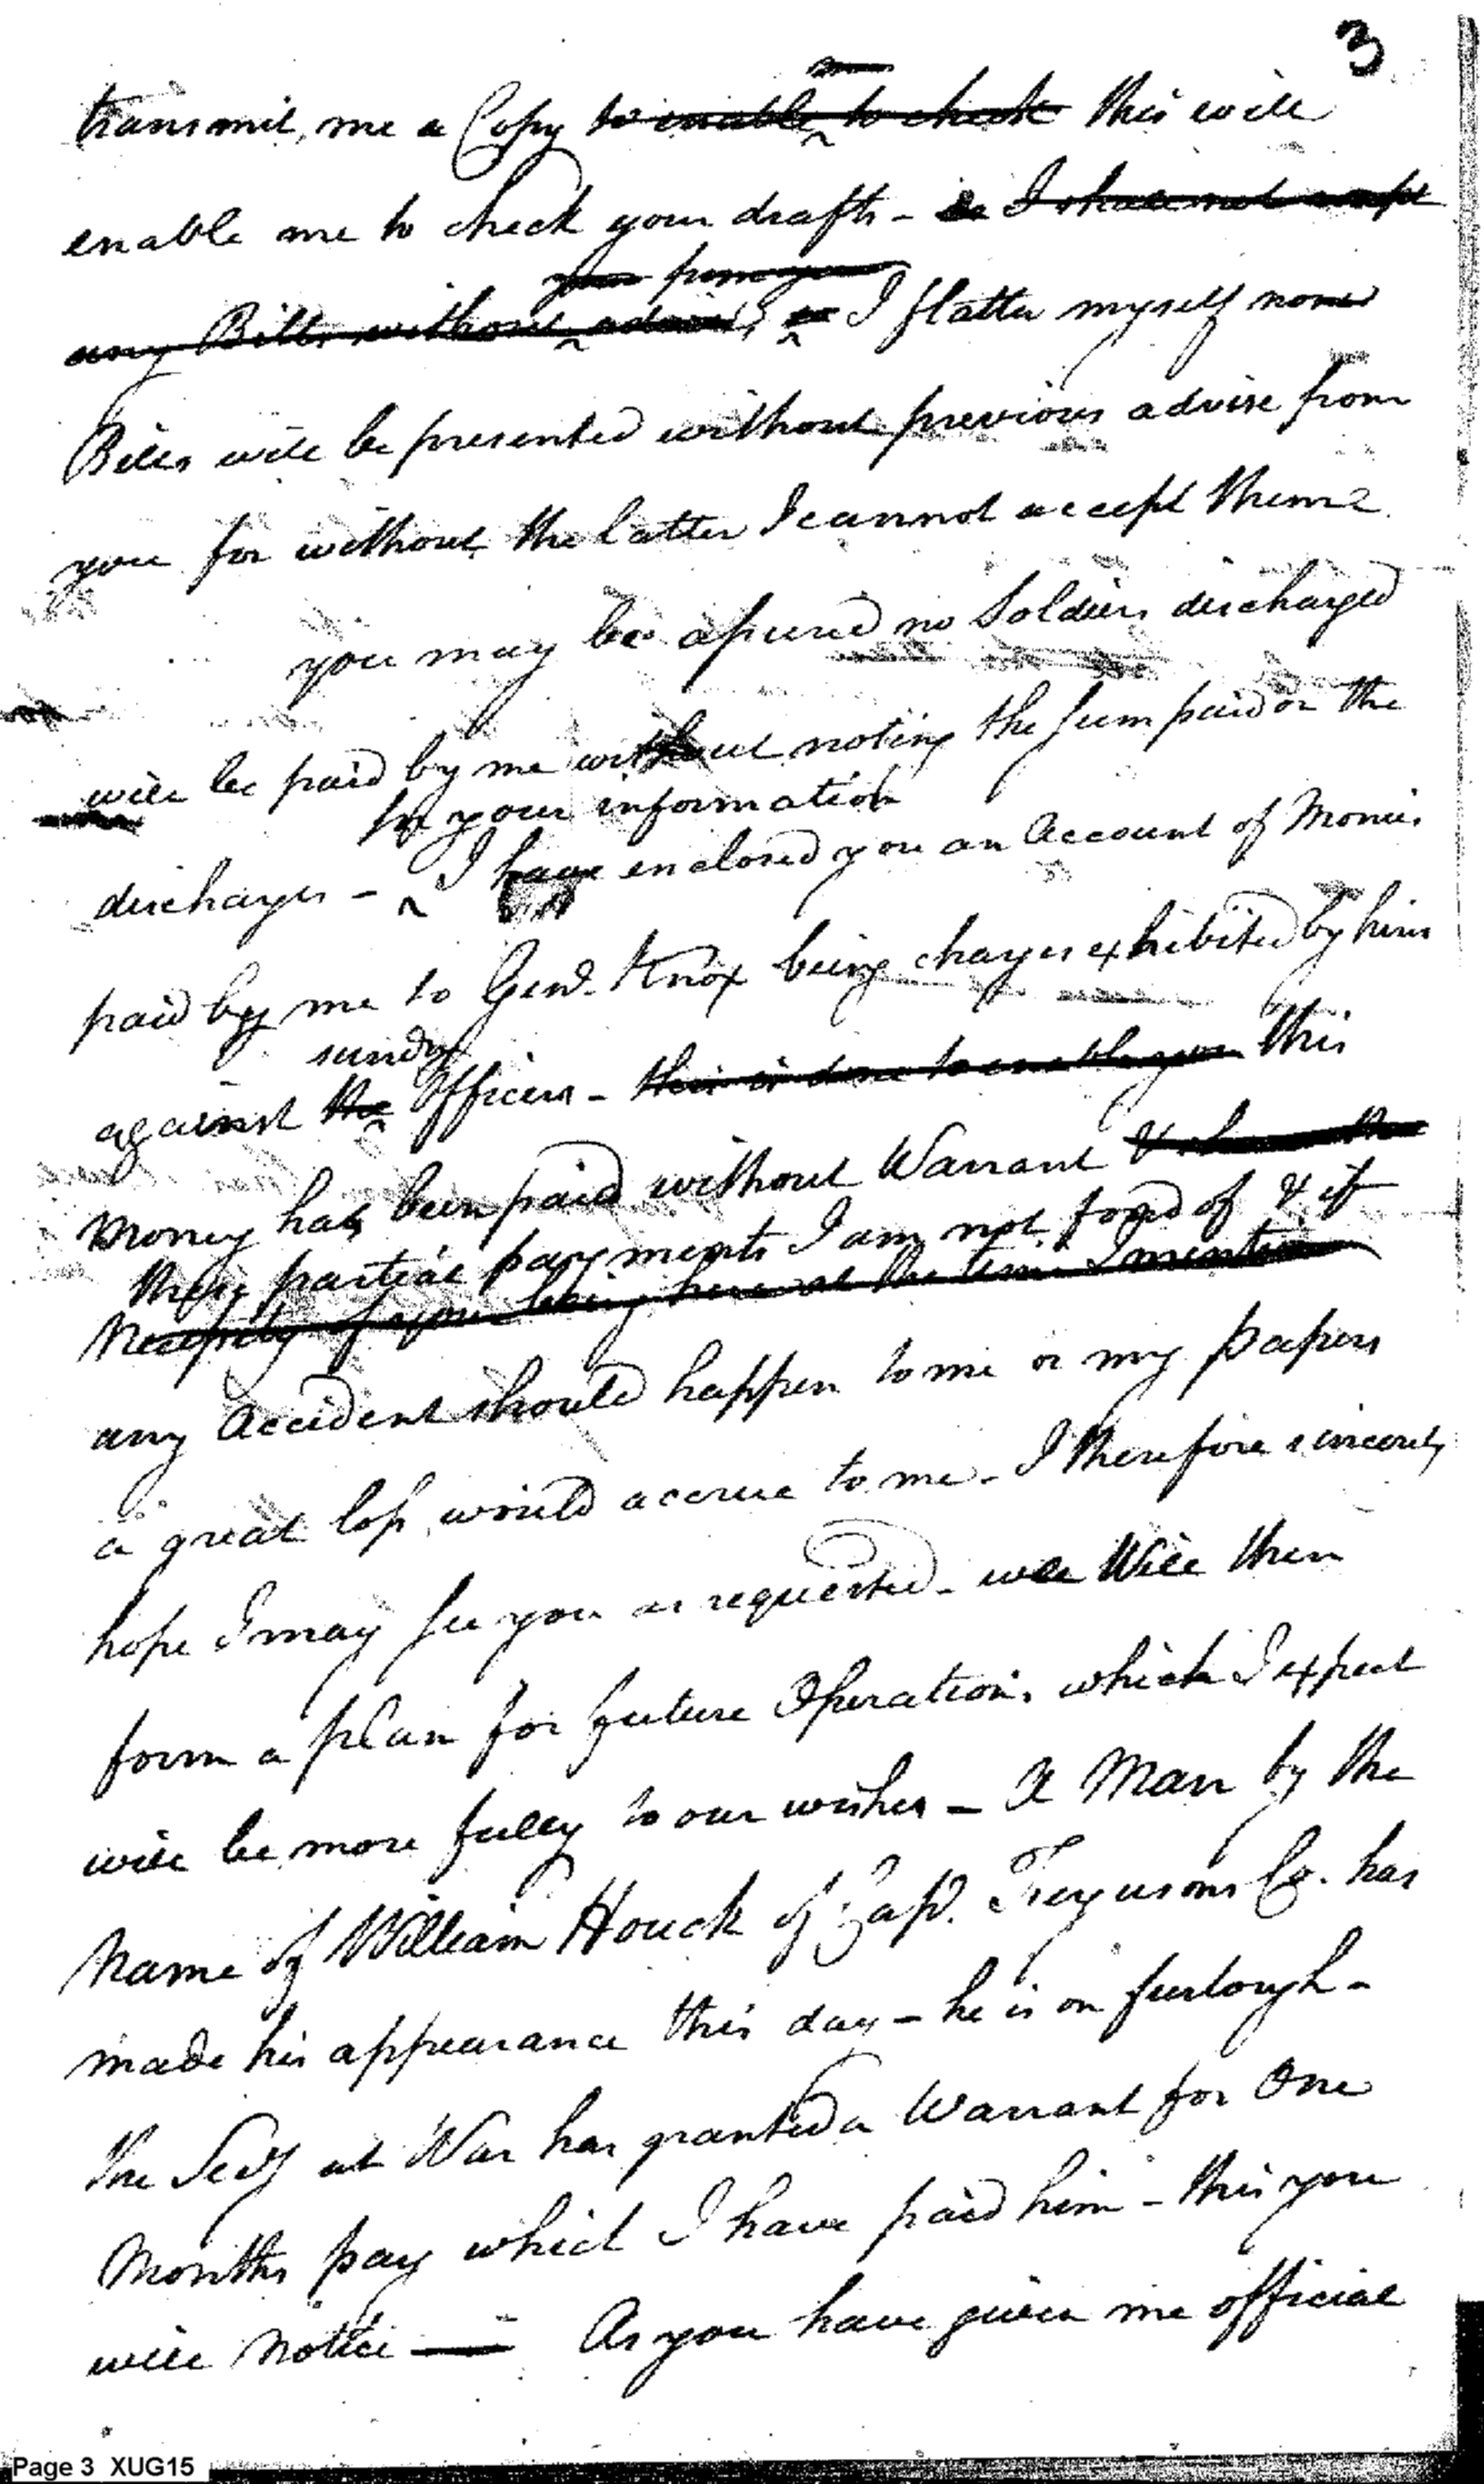 3
transmit, me a Copy to enable to check this will
enable me to check your drafts - so I shall not accept
from you
any Bills without advice, I flatter myself none
Bills will be presented without previous advise from
you for without the latter I cannot accept them
you may be assured no Soldiers discharged
will be paid by me without noting the sum paid on the
for your information
discharges - I have enclosed you an Account of Monies
paid by me to Genl. Knox being charges exhibited by him
sundry
against the Officers - this is done to enable you this
money has been paid without Warrant & the
these partial payments I am not fond of & if
Necessity of your being here at the time I mention
any Accident should happen to me or my papers
a great loss would accrue to me - I therefore sincerely
hope I may see you as requested - we Will then
form a plan for future Operations which I expect
will be more fully to our wishes - A Man by the
Name of William Houck of Capt. Fergusons Co. has
made his appearance this day - he is on furlough -
the Secy at War has granted a Warrant for One
Months pay which I have paid him - this you
will Notice — As you have given me official
Page 3 XUG15